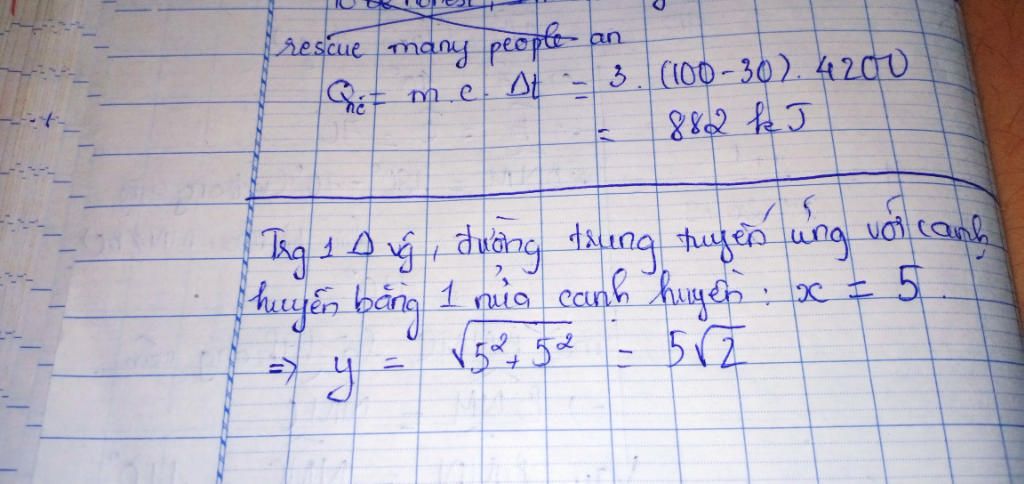 rescue many people an
Qnć = m.c. Δt = 3. (100-30). 4200
= 882 kJ
Trg 1 Δ vg, đường trung tuyến ứng với cạnh
huyền bằng 1 nửa cạnh huyền: x = 5.
=> y = √5² + 5² = 5√2